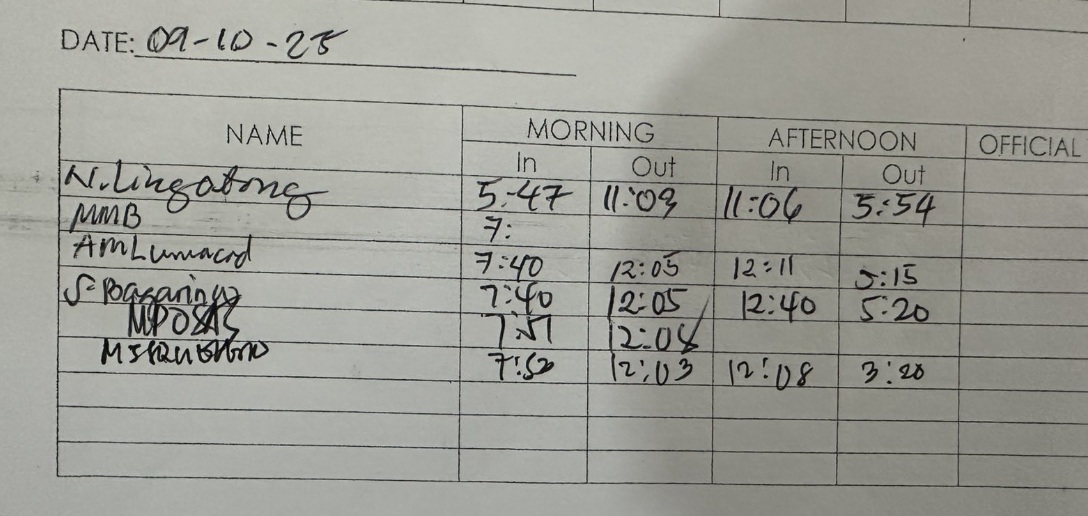 DATE: 09-10-25
NAME MORNING AFTERNOON OFFICIAL
In Out In Out
N. Lingatong 5:47 11:03 11:06 5:54
MMB 7:
AMLumacad 7:40 12:05 12:11 5:15
7:40 12:05 12:40 5:20
MPOSAS 7:51 12:08
7:52 12:03 12:08 3:20